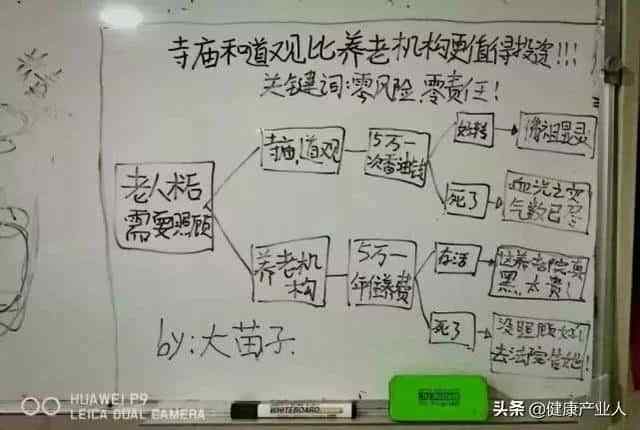 寺庙和道观比养老机构更值得投资!!!
关键词:零风险.零责任!
老人术后
需要照顾
寺庙,道观
5万一
次香油钱
好转
佛祖显灵
死了
血光之灾
气数已尽
养老机
构
5万一
年住养费
存活
这养老院真
黑,太贵!
死了
没照顾好!
去法院告她!
by:大苗子.
WHITEBOARD
HUAWEI P9
LEICA DUAL CAMERA
头条 @健康产业人